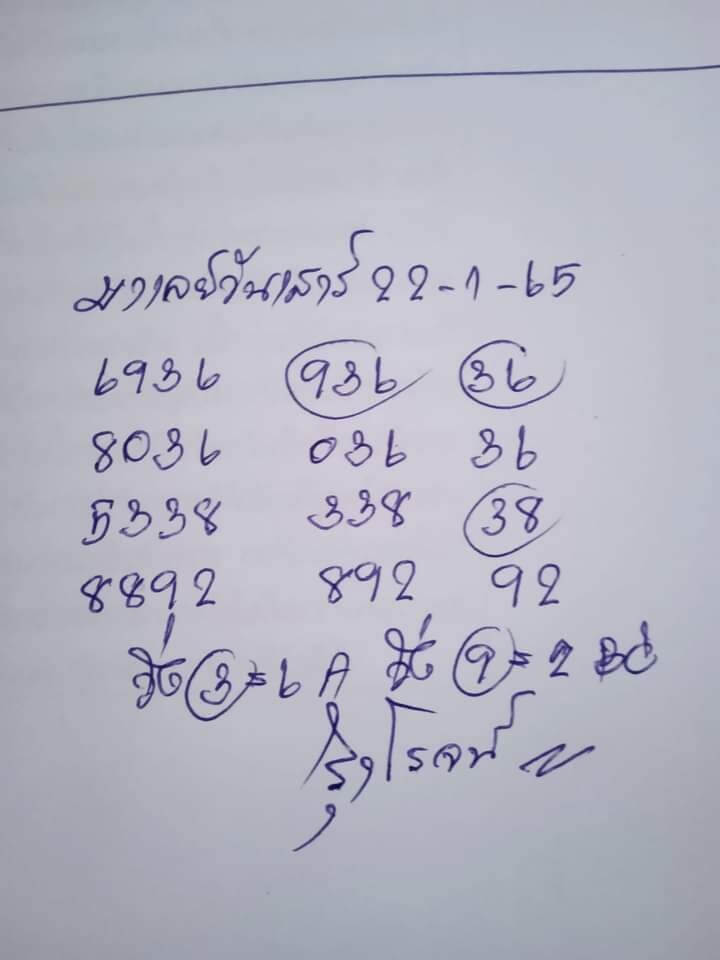 มาเลย์วันเสาร์ 22-1-65
6936 936 36
8036 036 36
5338 338 38
8892 892 92
วิ่ง 3=6 A วิ่ง 9=2
รุ่งโรจน์